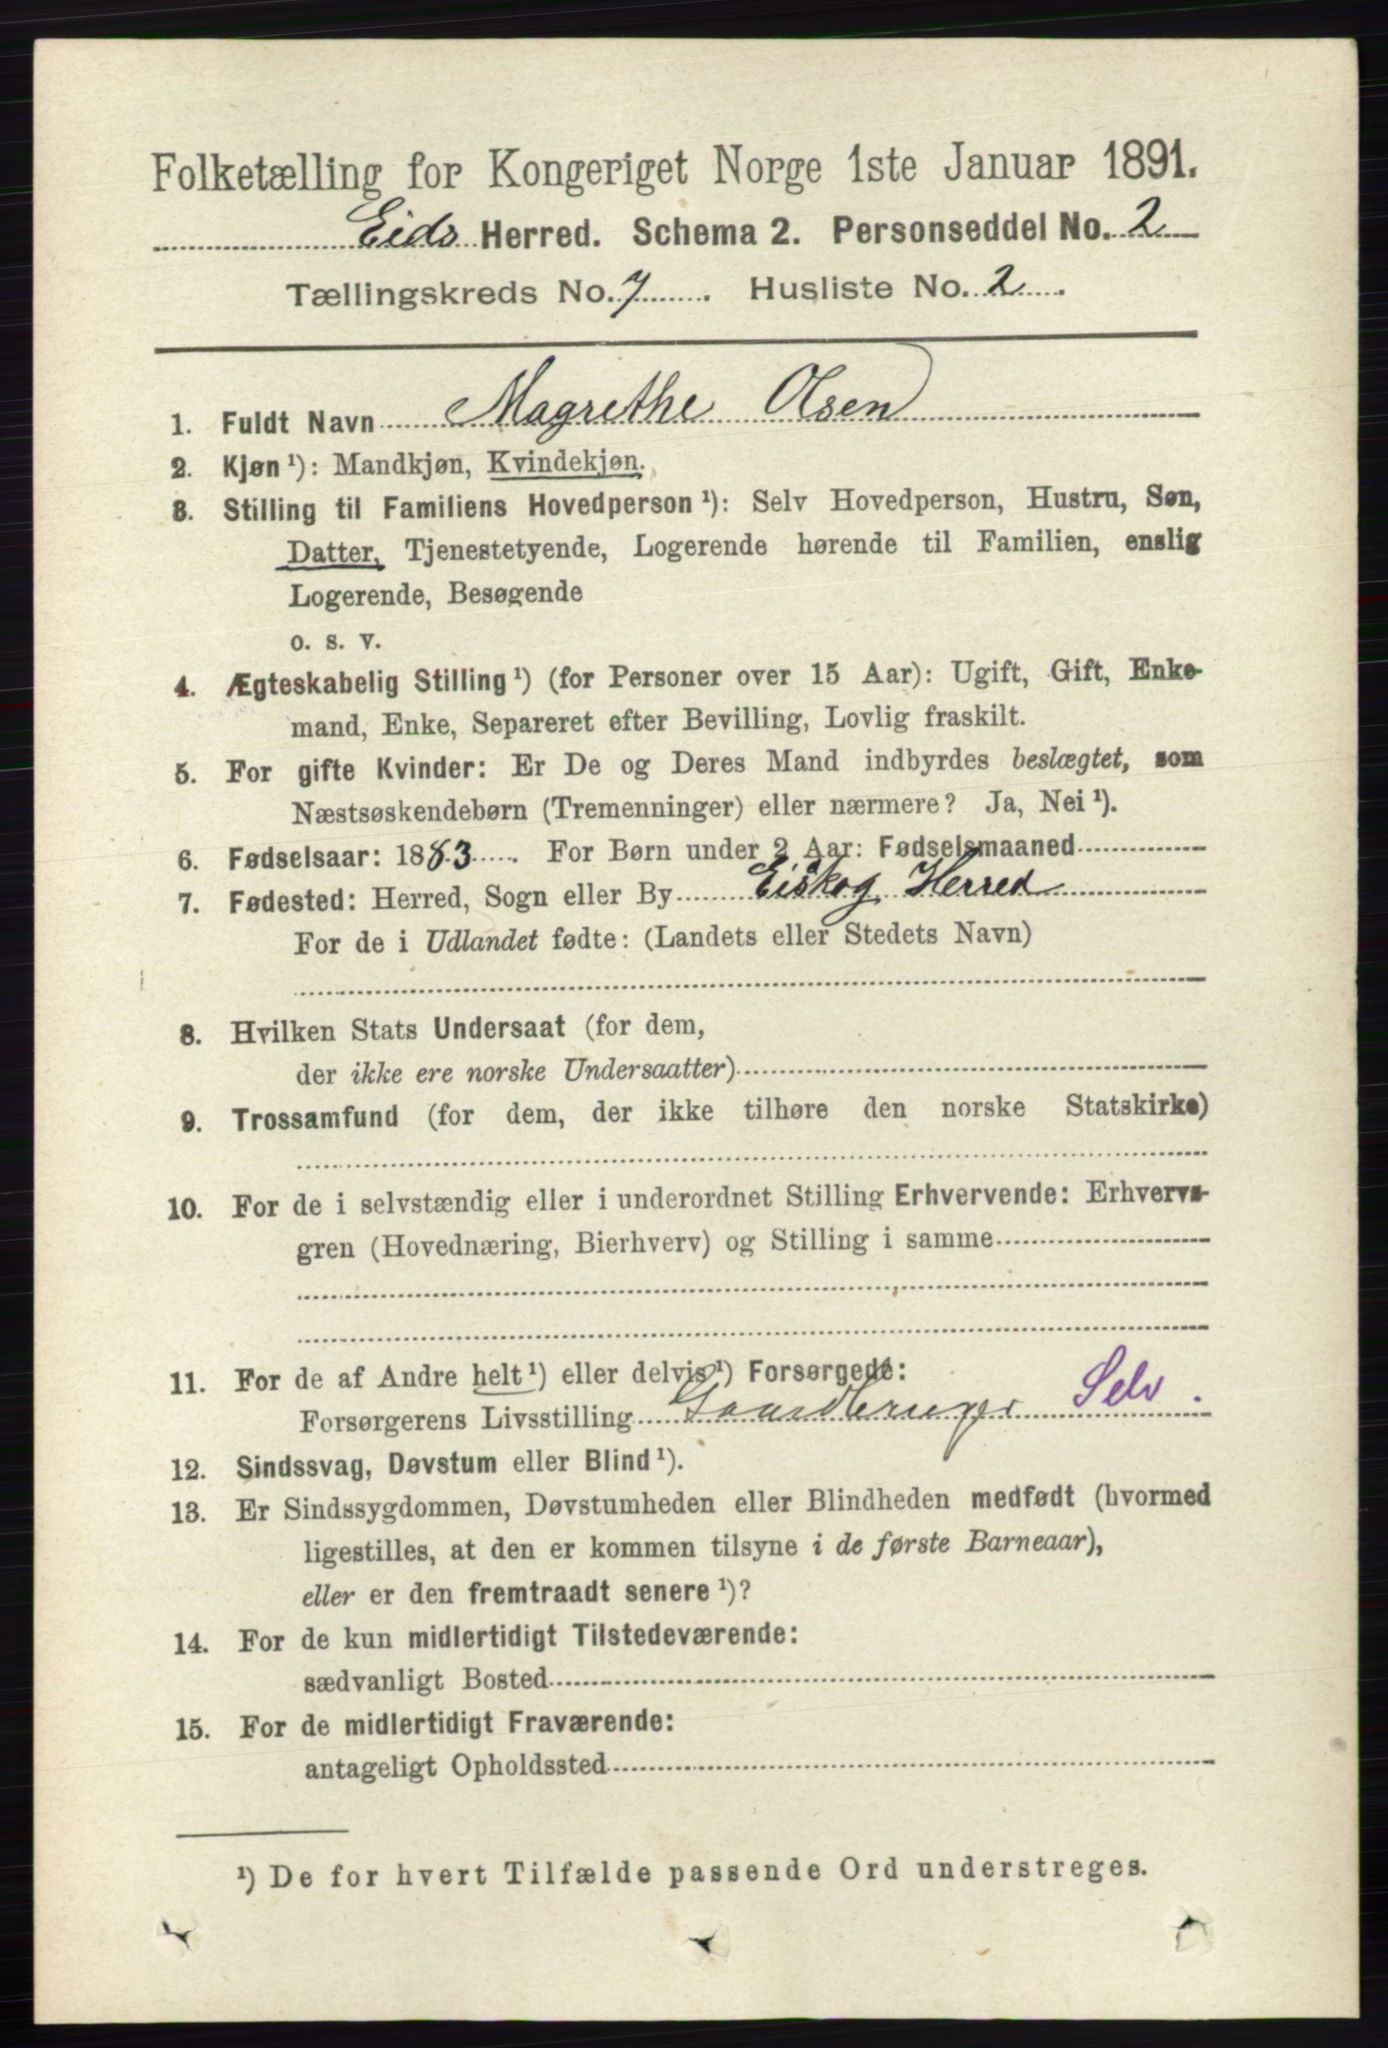 Folketælling for Kongeriget Norge 1ste Januar 1891.
Eids Herred. Schema 2. Personseddel No. 2
Tællingskreds No. 7. Husliste No. 2.
1. Fuldt Navn Magrethe Olsen
2. Kjøn ¹): Mandkjøn, Kvindekjøn.
3. Stilling til Familiens Hovedperson ¹): Selv Hovedperson, Hustru, Søn,
Datter, Tjenestetyende, Logerende hørende til Familien, enslig
Logerende, Besøgende
o. s. v.
4. Ægteskabelig Stilling ¹) (for Personer over 15 Aar): Ugift, Gift, Enke-
mand, Enke, Separeret efter Bevilling, Lovlig fraskilt.
5. For gifte Kvinder: Er De og Deres Mand indbyrdes beslægtet, som
Næstsøskendebørn (Tremenninger) eller nærmere? Ja, Nei ¹).
6. Fødselsaar: 1883. For Børn under 2 Aar: Fødselsmaaned
7. Fødested: Herred, Sogn eller By Eiskog Herred
For de i Udlandet fødte: (Landets eller Stedets Navn)
8. Hvilken Stats Undersaat (for dem,
der ikke ere norske Undersaatter)
9. Trossamfund (for dem, der ikke tilhøre den norske Statskirke)
10. For de i selvstændig eller i underordnet Stilling Erhvervende: Erhvervs-
gren (Hovednæring, Bierhverv) og Stilling i samme
11. For de af Andre helt ¹) eller delvis ¹) Forsørgede:
Forsørgerens Livsstilling Gaardbruger Selv.
12. Sindssvag, Døvstum eller Blind ¹).
13. Er Sindssygdommen, Døvstumheden eller Blindheden medfødt (hvormed
ligestilles, at den er kommen tilsyne i de første Barneaar),
eller er den fremtraadt senere ¹)?
14. For de kun midlertidigt Tilstedeværende:
sædvanligt Bosted
15. For de midlertidigt Fraværende:
antageligt Opholdssted
¹) De for hvert Tilfælde passende Ord understreges.